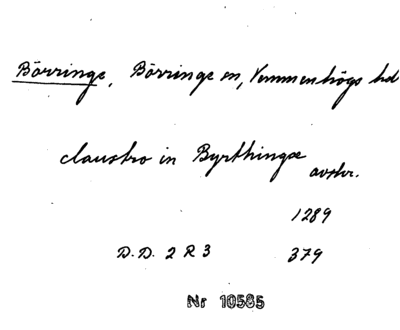 Börringe, Börringe sn, Vemmenhögs hd
claustro in Byrthingæ
avskr.
1289
D.D. 2 R 3 379
Nr 10585